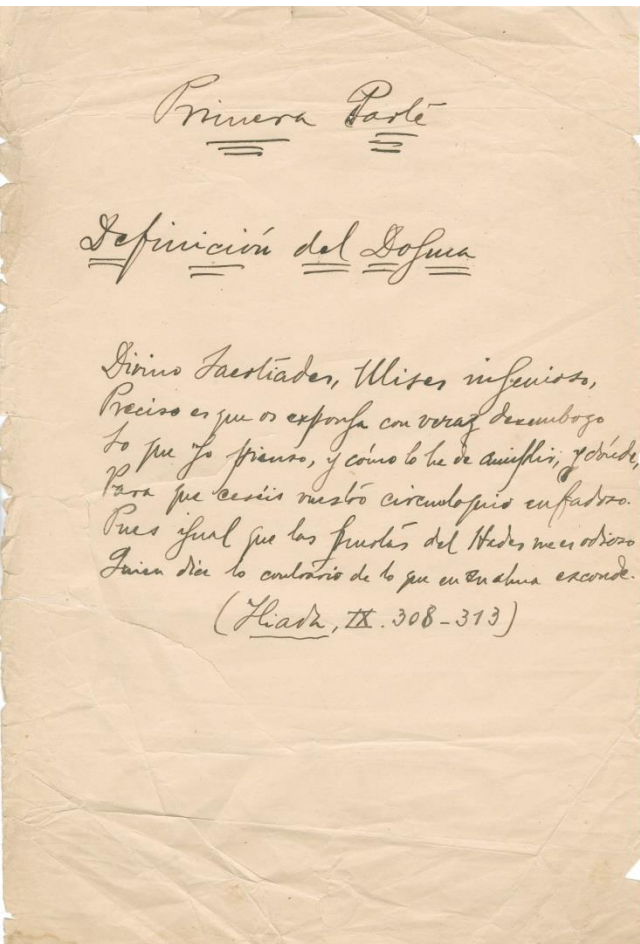 Primera Parte
Definición del Dogma
Divino Laertíades, Ulises ingenioso,
Preciso es que os exponga con veraz desembozo
Lo que yo pienso, y cómo lo he de cumplir, y dónde,
Para que ceséis vuestro circunloquio enfadoso.
Pues igual que las puertas del Hades me es odioso
Quien dice lo contrario de lo que en su alma esconde.
(Iliada, IX. 308-313)